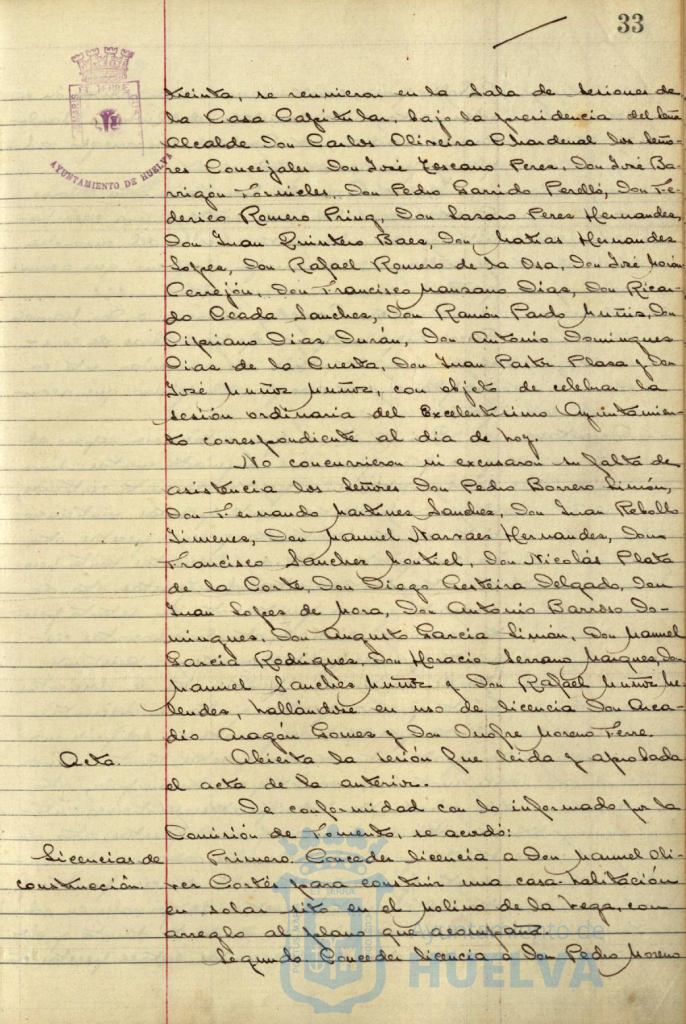 33
AYUNTAMIENTO DE HUELVA
treinta, se reunieron en la Sala de sesiones de
la Casa Capitular, bajo la presidencia del Señor
Alcalde Don Carlos Oliveira Chardenal los Seño-
res Concejales Don José Toscano Perez, Don José Ba-
rrigón Fornieles, Don Pedro Garrido Perelló, Don Fe-
derico Romero Pring, Don Lazaro Perez Hernandes,
Don Juan Quintero Baez, Don Matias Hernandes
Lopez, Don Rafael Romero de la Osa, Don José Morón
Cerrejón, Don Francisco Manzano Dias, Don Ricar-
do Ceada Sanches, Don Ramón Pardo Muñiz, Don
Cipriano Dias Durán, Don Antonio Domingues
Dias de la Cuesta, Don Juan Pastor Plaza y Don
José Muñoz Muñoz, con objeto de celebrar la
sesión ordinaria del Excelentisimo Ayuntamien-
to correspondiente al dia de hoy.
No concurrieron ni excusaron su falta de
asistencia los Señores Don Pedro Borrero Limón,
Don Fernando Martines Sanches, Don Juan Rebollo
Jimenes, Don Manuel Narvaes Hernandes, Don
Francisco Sanches Montiel, Don Nicolás Plata
de la Corte, Don Diego Gesteira Delgado, Don
Juan Lopes de Mora, Don Antonio Barroso Do-
mingues, Don Augusto Garcia Limón, Don Manuel
Garcia Rodrigues, Don Horacio Serrano Marques, Don
Manuel Sanches Muñoz y Don Rafael Muñoz Me-
lendes, hallándose en uso de licencia Don Arca-
dio Aragón Gomes y Don Onofre Moreno Ferre.
Acta.
Abierta la sesión fue leida y aprobada
el acta de la anterior.
De conformidad con lo informado por la
Comisión de Fomento, se acordó:
Licencias de
construcción.
Primero. Conceder licencia a Don Manuel Oli-
ver Cortés para construir una casa-habitación
en solar sito en el Molino de la Vega, con
arreglo al plano que acompaña
Segundo Conceder licencia a Don Pedro Moreno
Ayuntamiento de
HUELVA